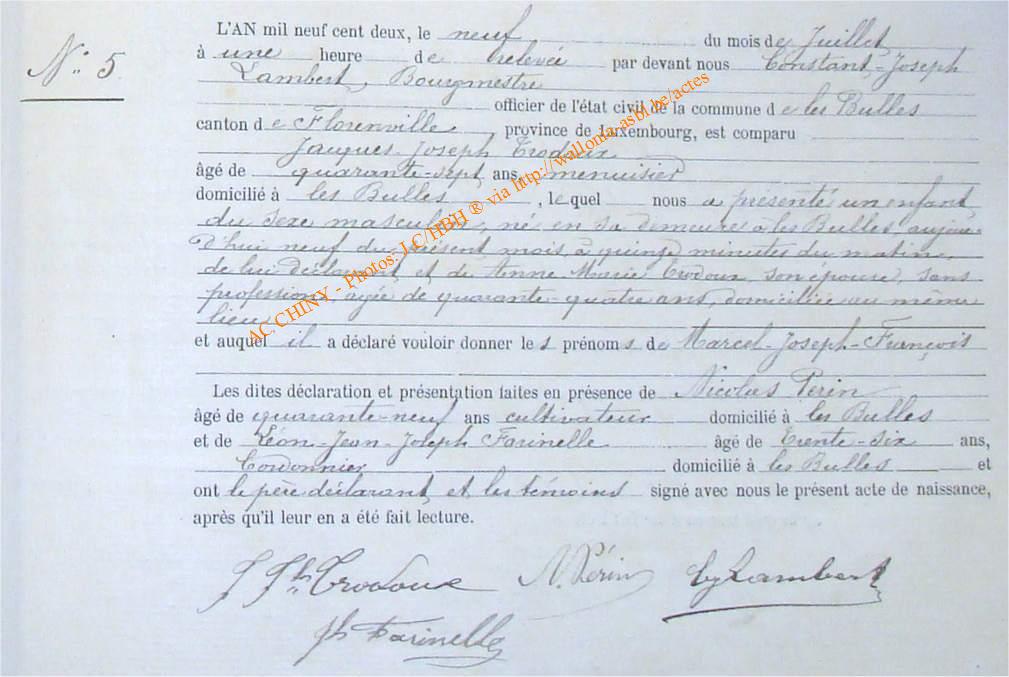 N° 5.
L'AN mil neuf cent deux, le neuf du mois de Juillet
à une heure de relevée par devant nous Constant-Joseph
Lambert, Bourgmestre
officier de l'état civil de la commune de les Bulles
canton de Florenville province de Luxembourg, est comparu
Jacques Joseph Trodoux
âgé de quarante-sept ans, menuisier
domicilié à les Bulles, lequel nous a présenté un enfant
du sexe masculin, né en sa demeure à les Bulles, aujour-
d'hui neuf du présent mois, à quinze minutes du matin,
de lui déclarant et de Anne Marie Trodoux, son épouse, sans
profession, agée de quarante-quatre ans, domiciliée au même
lieu
et auquel il a déclaré vouloir donner les prénoms de Marcel-Joseph-François
Les dites déclaration et présentation faites en présence de Nicolas Perin
âgé de quarante-neuf ans cultivateur domicilié à les Bulles
et de Léon-Jean-Joseph Farinelle âgé de Trente-six ans,
Cordonnier domicilié à les Bulles et
ont le père déclarant et les témoins signé avec nous le présent acte de naissance,
après qu'il leur en a été fait lecture.
J Jh Trodoux N. Périn CJ Lambert
Jh Farinelle
AC CHINY - Photos: J.C/HBH ® via http://wallonia.asbl.be/actes